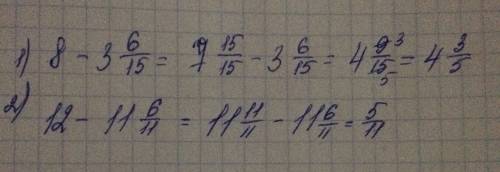 1) 8 - 3 6/15 = 7 15/15 - 3 6/15 = 4 9³/15₅ = 4 3/5
2) 12 - 11 6/11 = 11 11/11 - 11 6/11 = 5/11